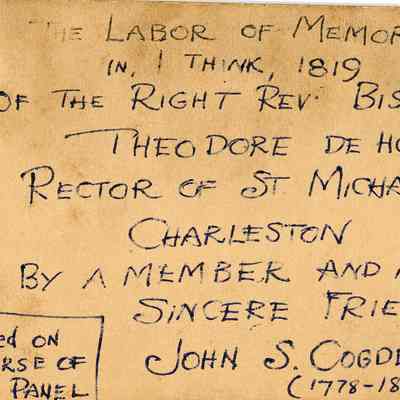 THE LABOR OF MEMOR
IN, I THINK, 1819
OF THE RIGHT REV. BIS
THEODORE DE HO
RECTOR OF ST MICHA
CHARLESTON
BY A MEMBER AND A
SINCERE FRIE
JOHN S. COGD
(1778-18
ed ON
RSE OF
PANEL